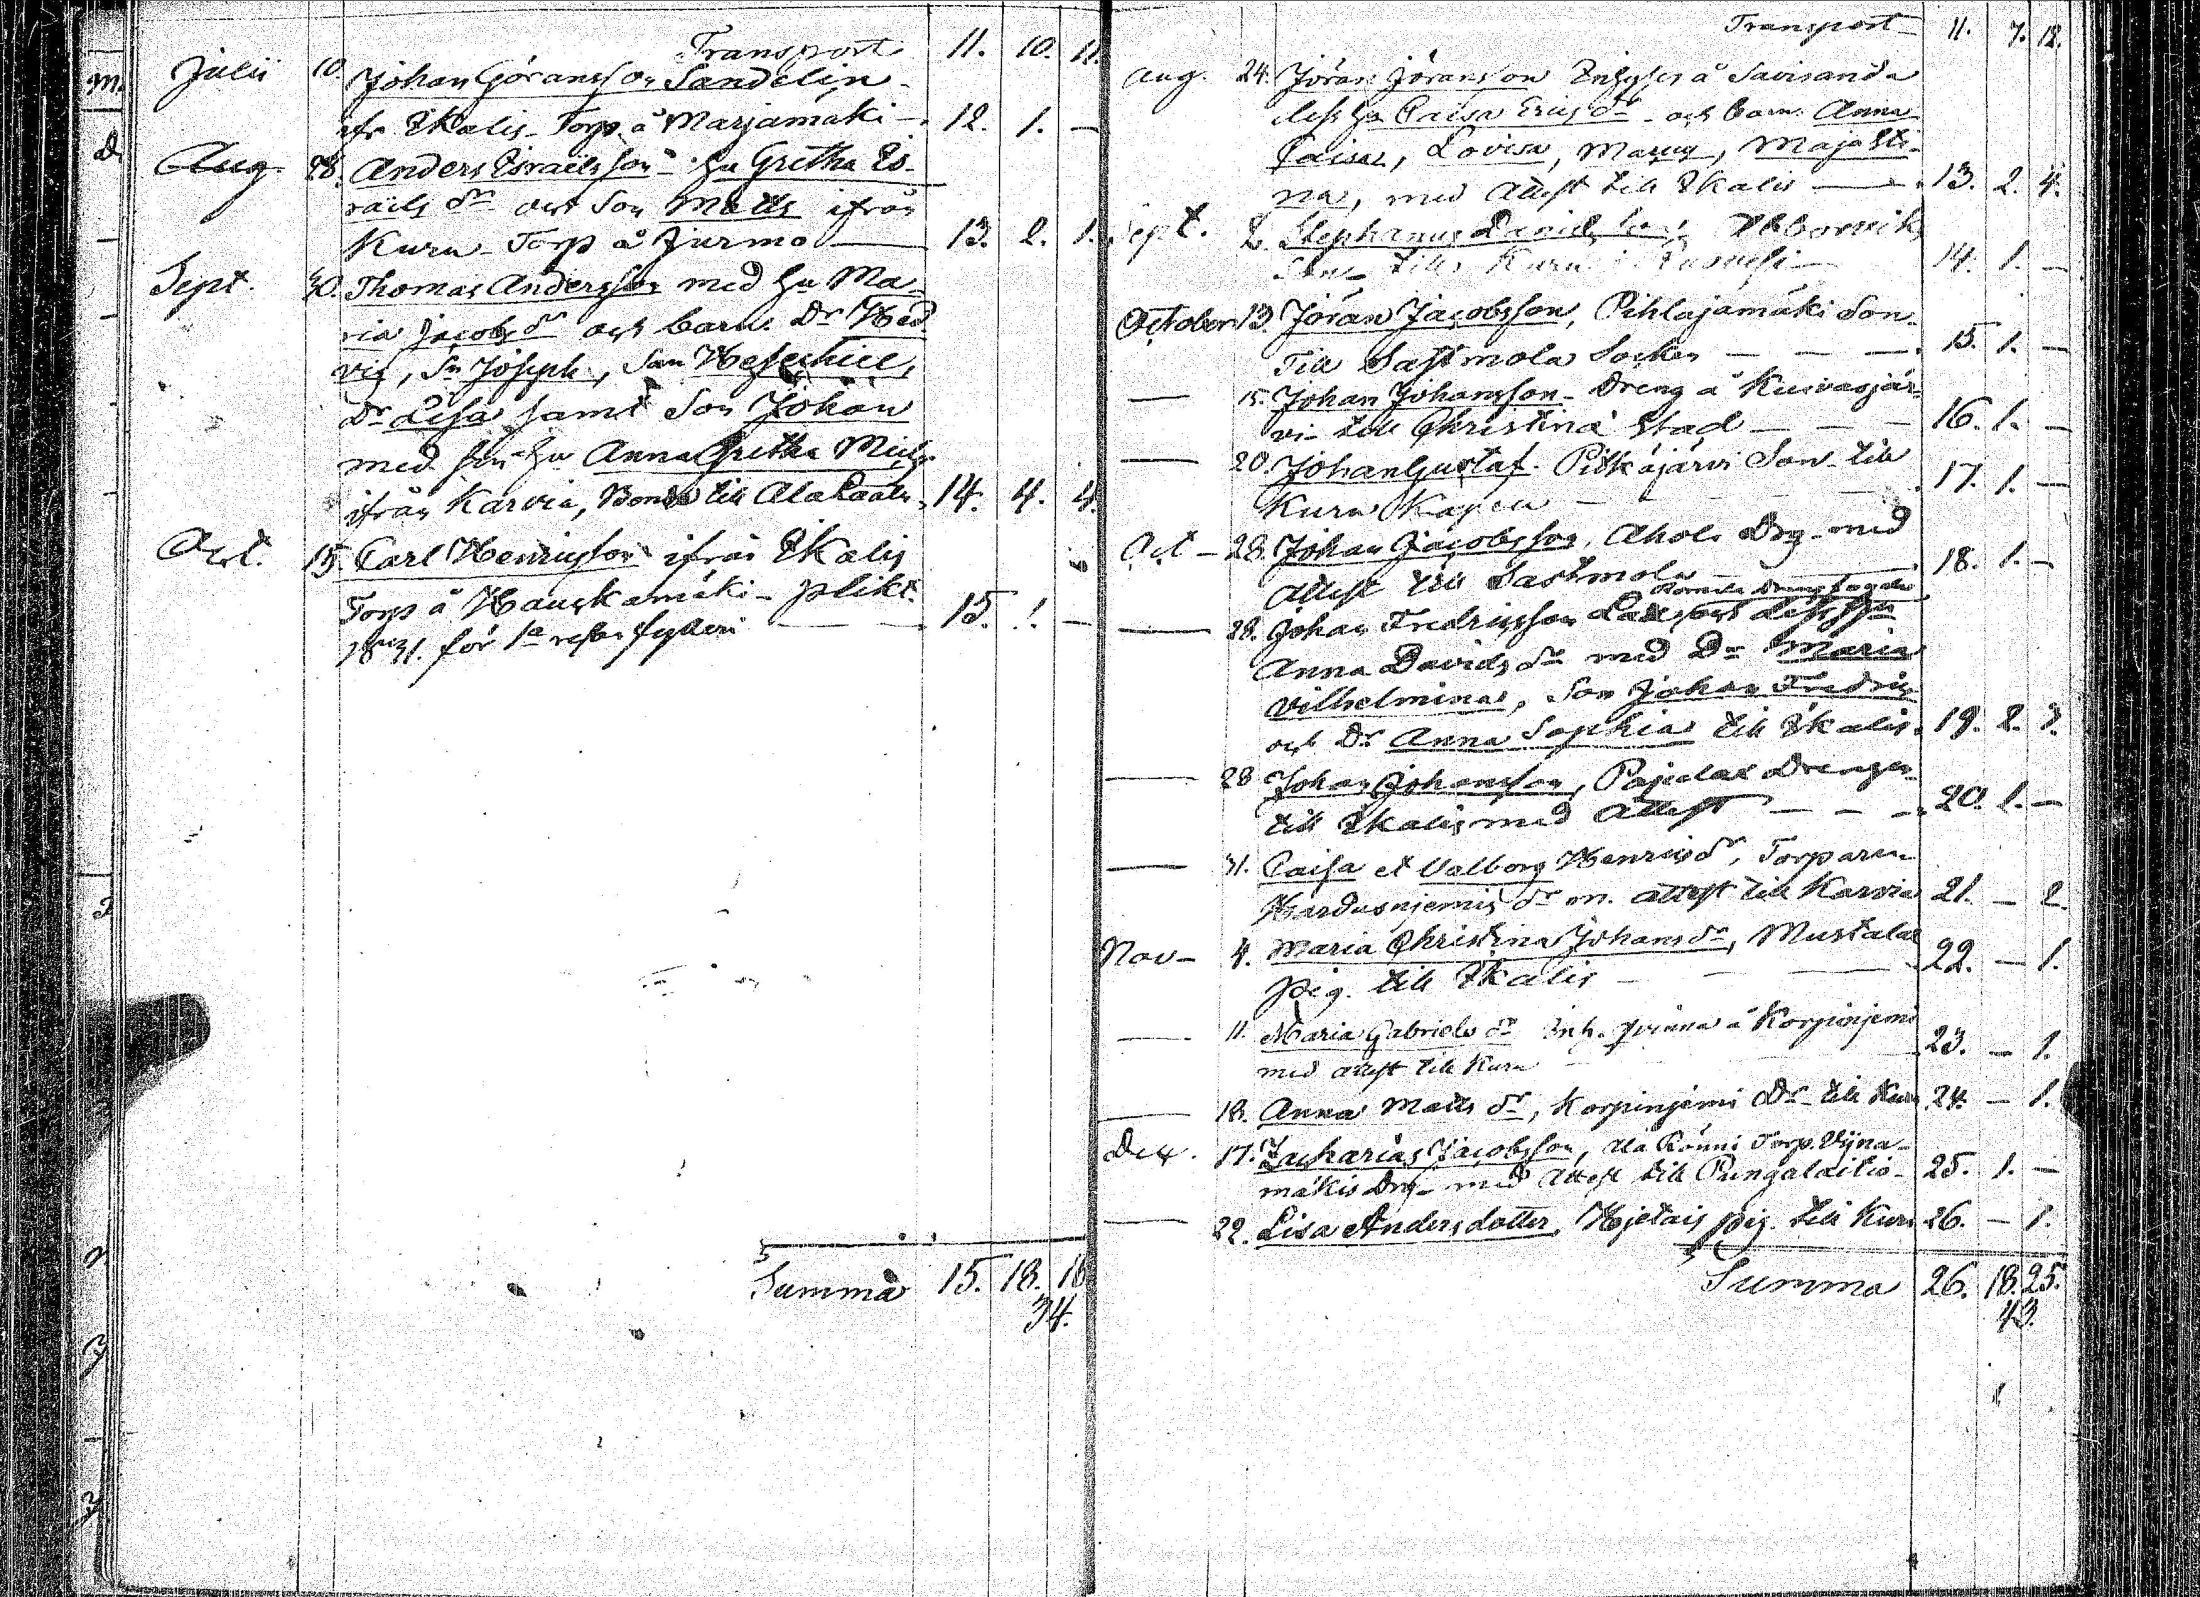 Transport 11. 10. 11.
Julii 10. Johan Göransson Sandelin
ifr. Ikalis Torp. å Marjamäki 12. 1. —
Aug. 28. Anders Israelsson hu Gretha Is-
raels dr och Son Matts ifrån
Kuru Torp å Jurmo — 13. 2. 1.
Sept. 30. Thomas Andersson med hu Ma-
ria Jacobs dr och barn Dr Hed
vig, Sn Joseph, Son Hesechiel,
Dr Lisa samt Son Johan
med sin hu Anna Gretha Michs
ifrån Karvia, Bonde till 14. 4. 4.
Oct. 15. Carl Henricsson ifrån Ikalis
Torp å Hauskamäki
för 15. 1. —
Summa 15. 18. 16
34.
Transport 11. 7. 12.
Aug. 24. Jöran Jöransson å Savisanda
hu Caisa Erics dr och barn Anna
Caisa, Lovisa, Maria, Maja Sti-
na, med attest till Ikalis — 13. 2. 4.
Sept. 2. Stephanus Davidsson,
Son till Kuru 14. 1. —
October 13. Jöran Jacobsson, Pihlajamäki Son
till Sastmola Socken — — — 15. 1. —
— 15. Johan Johansson Dreng å Kuivasjär-
vi till Christina Stad — — — 16. 1. —
— 20. Johan Gustaf Pitkäjärvi Son till
Kuru Kapell — 17. 1. —
Oct — 28. Johan Jacobsson, Ahola Drg med
attest till Sastmola — 18. 1. —
— 28. Johan Fredricsson
Anna Davids dr med Dr Maria
Vilhelmina, Son Johan Fredric
och Dr Anna Sophia till Ikalis. 19. 2. 3.
— 28 Johan Johansson, Pajulax Dreng
till Ikalis med attest — — — 20. 1. —
— 31. Caisa et Valborg Henrics dr, Torparen
dr m. attest till Karvia 21. — 2.
Nov — 4. Maria Christina Johans dr, Mustalax
pig. till Ikalis — 22. — 1.
— 11. Maria Gabriels dr Inh. qvinna å Korpinjemi
med attest till Kuru 23. — 1.
— 18. Anna Matts dr, Korpinjemi Dr till Kuru 24. — 1.
Dec. 17. Zacharias Jacobsson, Ala Rönni Torp. Vijna-
mäkis Drg med attest till Pungalaitio 25. 1. —
— 22. Lisa Andersdotter, Hjetais pig. till Kuru 26. — 1.
Summa 26. 18. 25.
43.